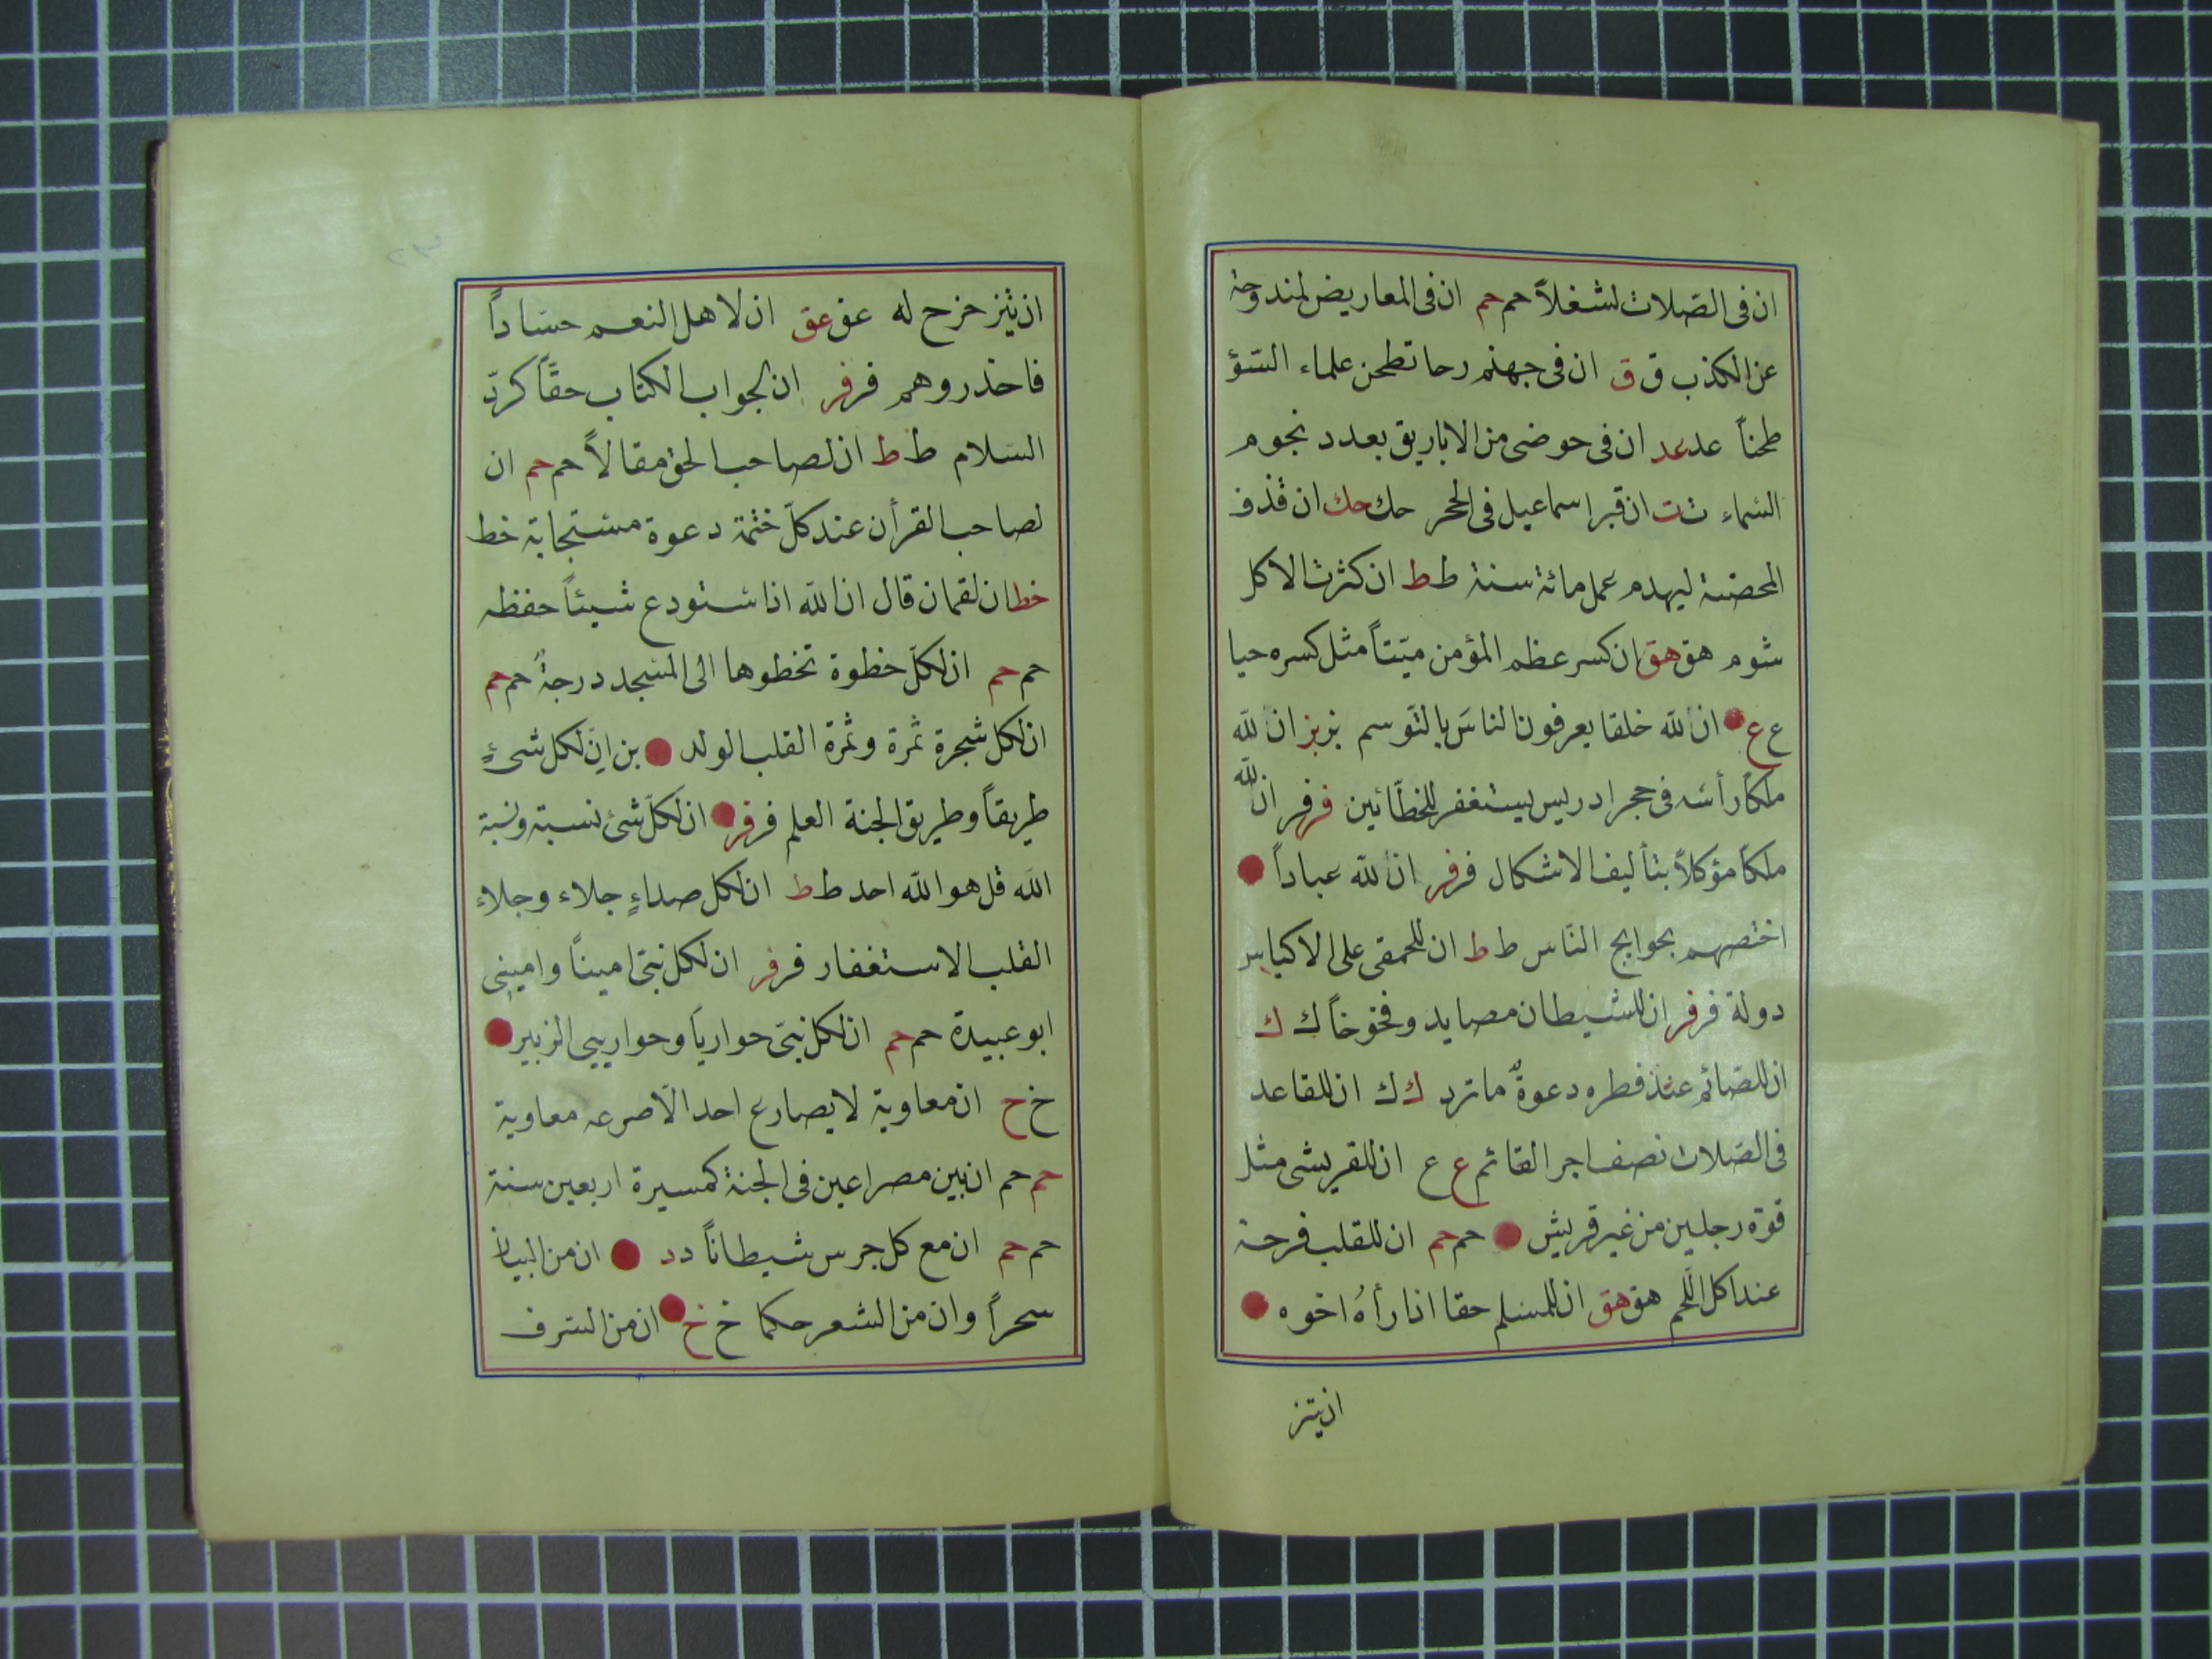 ان فى الصّلات لشغلاً حم حم ان فى المعاريض لمندوحة
عن الكذب ق ق ان فى جهنم رحا تطحن علماء السّؤ
طحناً عد عد ان فى حوضى من الاباريق بعدد نجوم
السّماء ت ت ان قبر اسماعيل فى الحجر حك حك ان قذف
المحصنة ليهدم عمل مائة سنة ط ط ان كثرت الاكل
شوم هق هق ان كسر عظم المؤمن ميّتاً مثل كسره حيا
ع ع ان لله خلقا يعرفون الناسَ بالتّوسم بز بز ان لله
ملكاً رأسه فى حجر ادريس يستغفر للخطّائين فر فر ان لله
ملكاً مؤكلاً بتأليف الاشكال فر فر ان لله عباداً
اختصهم بحوايج النّاس ط ط ان للحمقى على الاكياس
دولة فر فر ان للشيطان مصايد وفخوخاً ك ك
ان للصّائم عند فطره دعوةٌ ما ترد ك ك ان للقاعد
فى الصّلات نصف اجر القائم ع ع ان للقريشى مثل
قوة رجلين من غير قريش حم حم ان للقلب فرحة
عند اكل اللّحم هق هق ان للمسلم حقا اذا رأهُ اخوه
ان يتز
ان يتزخزح له عق عق ان لاهل النعم حسّاداً
فاحذروهم فر فر ان لجواب الكتاب حقّاً كردّ
السّلام ط ط ان لصاحب الحق مقالاً حم حم ان
لصاحب القرأن عند كلّ ختمة دعوة مستجابة خط
خط ان لقمان قال ان الله اذا ستودع شيئاً حفظه
حم حم ان لكلّ خطوة تخطوها الى المسجد درجةً حم حم
ان لكل شجرة ثمرة وثمرة القلب الولد بن انّ لكل شىءٍ
طريقاً وطريق الجنة العلم فر فر ان لكلّ شئ نسبة ونسبة
الله قل هو الله احد ط ط ان لكل صداءٍ جلاء وجلاء
القلب الاستغفار فر فر ان لكل نبىّ اميناً وامينى
ابو عبيدة حم حم ان لكل نبىّ حوارياً وحواريى الزبير
خ ح ان معاوية لا يصارع احد الّا صرعه معاوية
حم حم ان بين مصراعين فى الجنة كمسيرة اربعين سنة
حم حم ان مع كل جرس شيطاناً د د ان من البيان
سحراً وان من الشعر حكما خ خ ان من السّرف